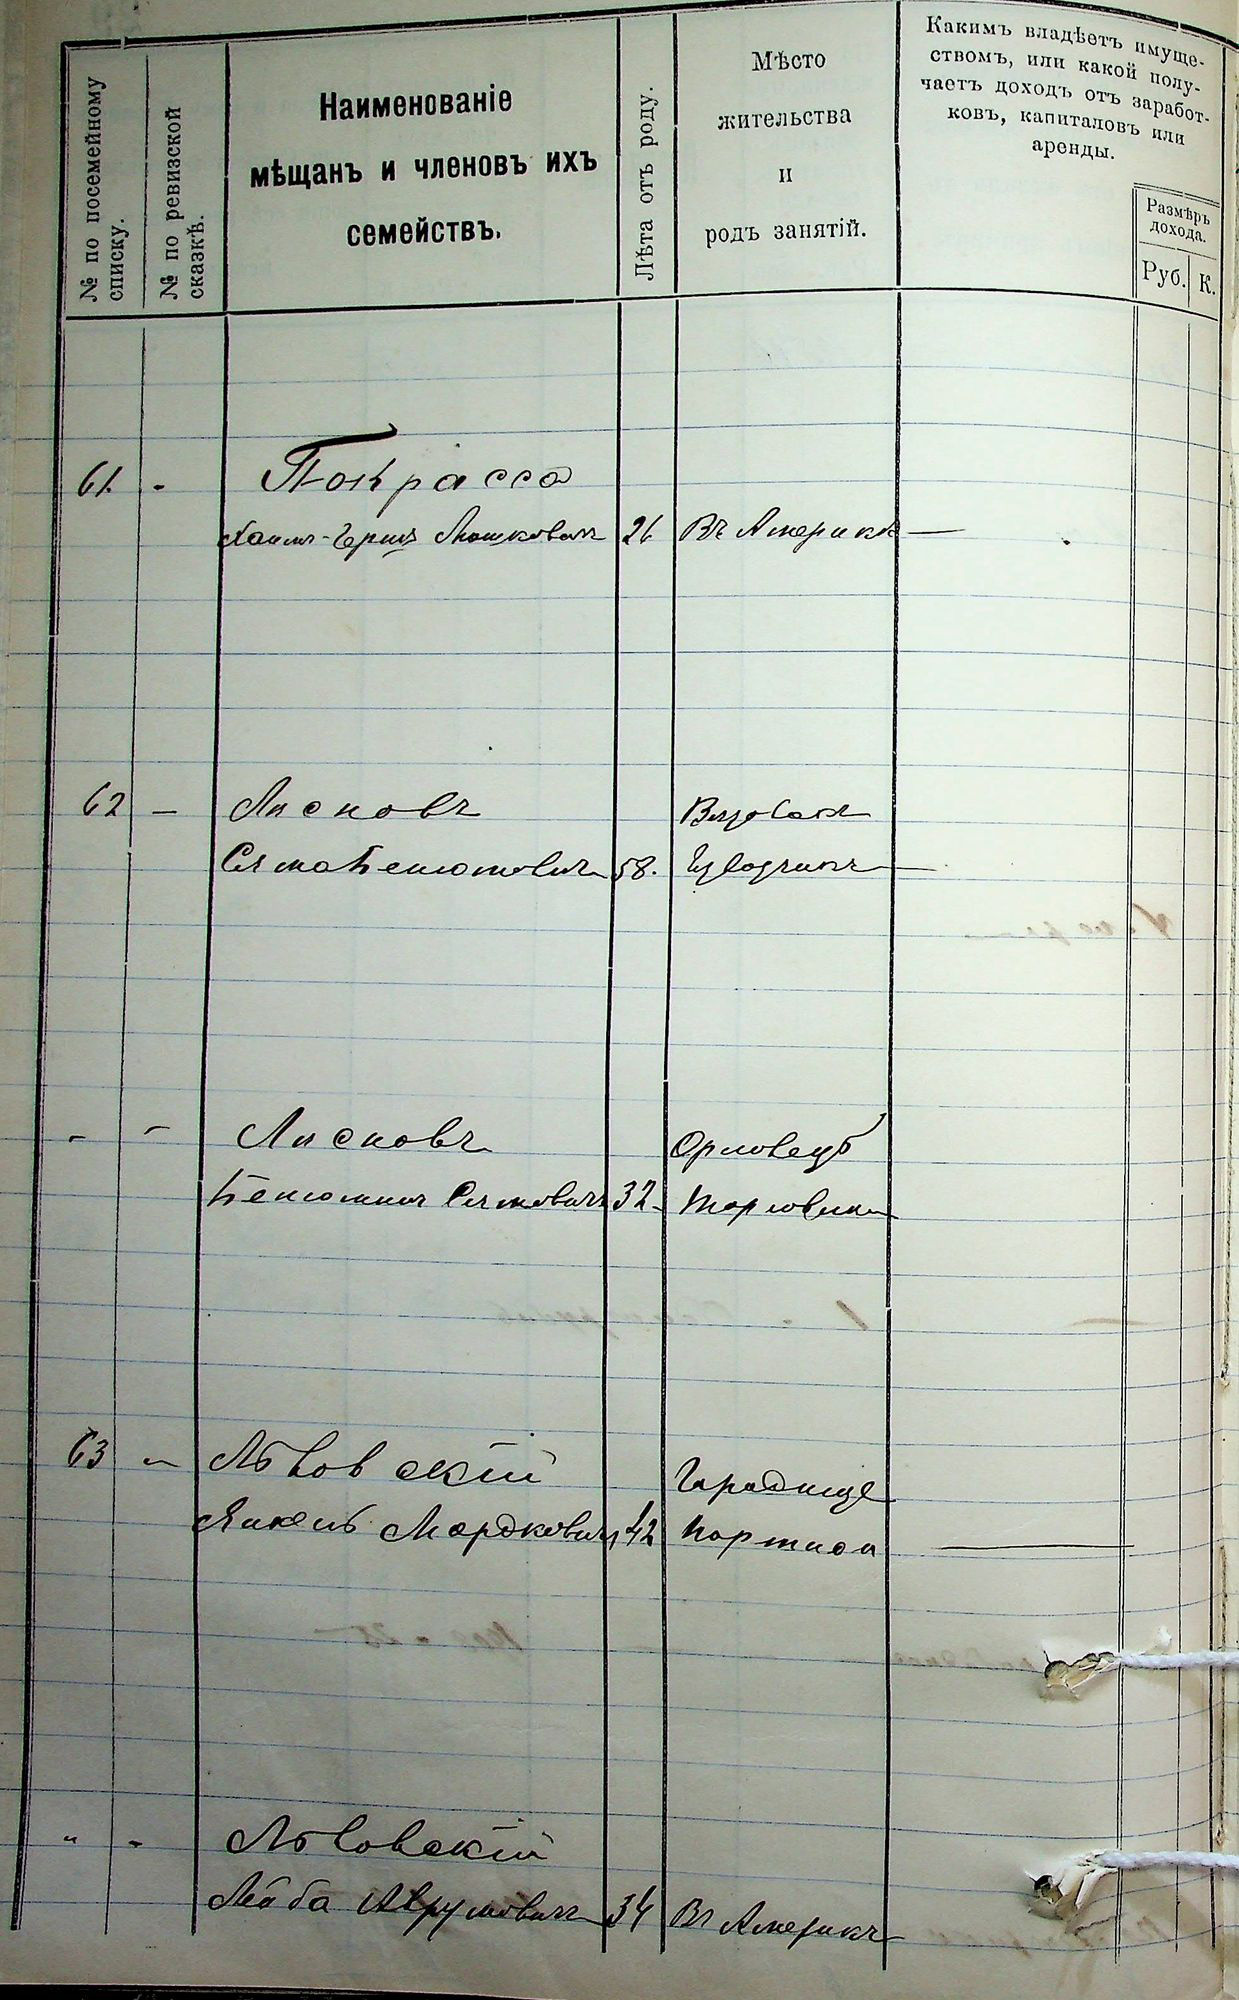 № по посемейному
списку.
№ по ревизской
сказкѣ.
Наименованіе
мѣщанъ и членовъ ихъ
семействъ.
Лѣта отъ роду.
Мѣсто
жительства
и
родъ занятій.
Какимъ владѣетъ имуще-
ствомъ, или какой полу-
чаетъ доходъ отъ заработ-
ковъ, капиталовъ или
аренды.
Размѣръ
дохода.
Руб. К.
61. - Покрасса
Хаимъ-Герцъ Мошковичъ 26 Въ Америкѣ —
62 - Лисновъ
58. Извозчикъ —
- - Лисновъ Орловецъ
Беньюминъ 32 Торговецъ
63 - Львовскій Городище
Янкель Мордковичъ 42 Портной —
" - Львовскій
Лейба Аврумовичъ 34 Въ Америкѣ